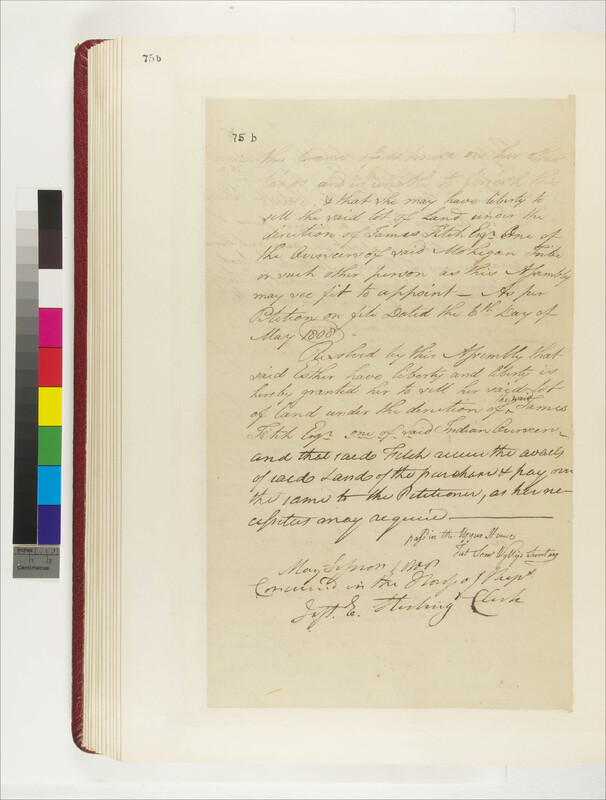 75 b
75 b
the
lands and is unable to
& that she may have liberty to
sell the said lot of Land under the
direction of James Fitch Esqr. One of
the Overseers of said Mohegan Tribe
or such other person as this Assembly
may see fit to appoint — As per
Petition on file Dated the 6th Day of
May 1808
Resolved by this Assembly that
said Esther have liberty and liberty is
hereby granted her to sell her said lot
of land under the direction of the said James
Fitch Esqr. one of said Indian Overseers
and that said Fitch receive the avails
of said Land of the purchase & pay over
the same to the Petitioner, as her ne-
cessities may require
pass'd in the Upper House
Test Saml Wyllys Secretary
May Session 1808
Concurred in the House of Repts.
Test. E. Sterling Clerk
Inches
Centimetres